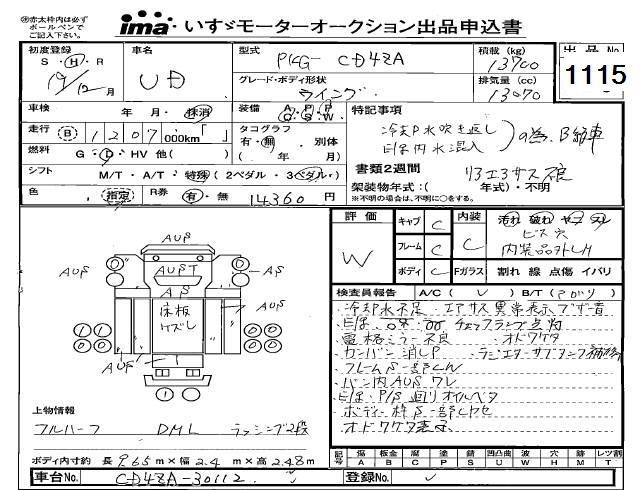 ※赤太枠内は必ず
ボールペンで
ご記入下さい。
ima いすゞモーターオークション出品申込書
初度登録 車名 型式 積載 (kg) 出品No
S・H・R UD PKG- CD48A 13700
19/12月 グレード・ボディ形状 排気量 (cc) 1115
ウイング 13070
車検 年 月・抹消 装備 A P P C S W 特記事項
走行 B 1207,000km「 」 タコグラフ 冷却水吹き返し
有・無 別体 EG内水混入 )の為、B給車
燃料 G・D・HV 他( ) ( 年 月) 書類2週間 リアエアサス破
シフト M/T・A/T・特殊 (2ペダル・3ペダル・) 架装物年式:( 年式)・不明
色 指定 R券 有・無 14360 円 ※不明の場合は、不明に○をする。
評価 キャブ C 内装 汚れ 破れ ヤブ スレ
W フレーム C C ビス穴
内装品外しH
ボディ C Fガラス 割れ 線 点傷 イバリ
AUS
AUS AUST AS
AS
床板
ケズレ
AUS AUS
検査員報告 A/C ( レ ) B/T (
・冷却水不足 エアサス異常表示ブザー音
チェックランプ点灯
・電格ミラー不良 ・オドワケタ
・カンバン消しP ・ラジエターサブタンク補修
・フレームS一部LW
・バン内AUSワレ
・EG、P/S廻りオイルベタ
・ボディー枠S一部
・オドワケタ表示
上物情報
フルハーフ DML ラッシング2段
ボディ内寸約 長 9.65 m × 幅 2.4 m × 高 2.48 m
記号 傷 板金 腐 塗 錆 凹凸曲 波 穴 跡 レツ割
A B C P S U W H M T
車台No. CD48A-30112 登録No.